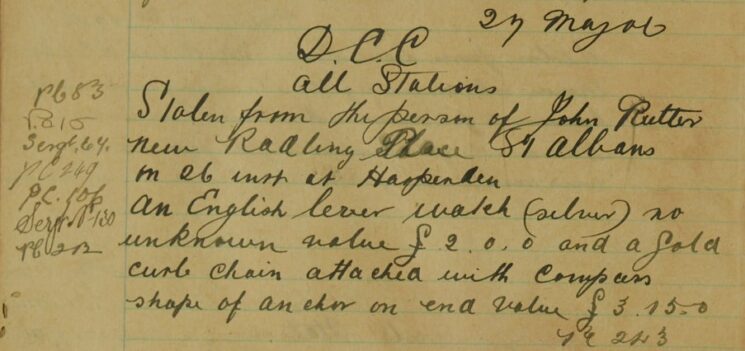 27 May 06
D.C.C
All Stations
Stolen from the person of John Rutter
new Radling Place St Albans
on 26 inst at Harpenden
An English lever watch (silver) no
unknown value £ 2.0.0 and a gold
curb chain attached with compass
shape of anchor on end value £ 3.15-0
PC 243
PC 83
P.C 15
Sergt. 64.
PC 249
P.C.
Sergt 130
PC 212